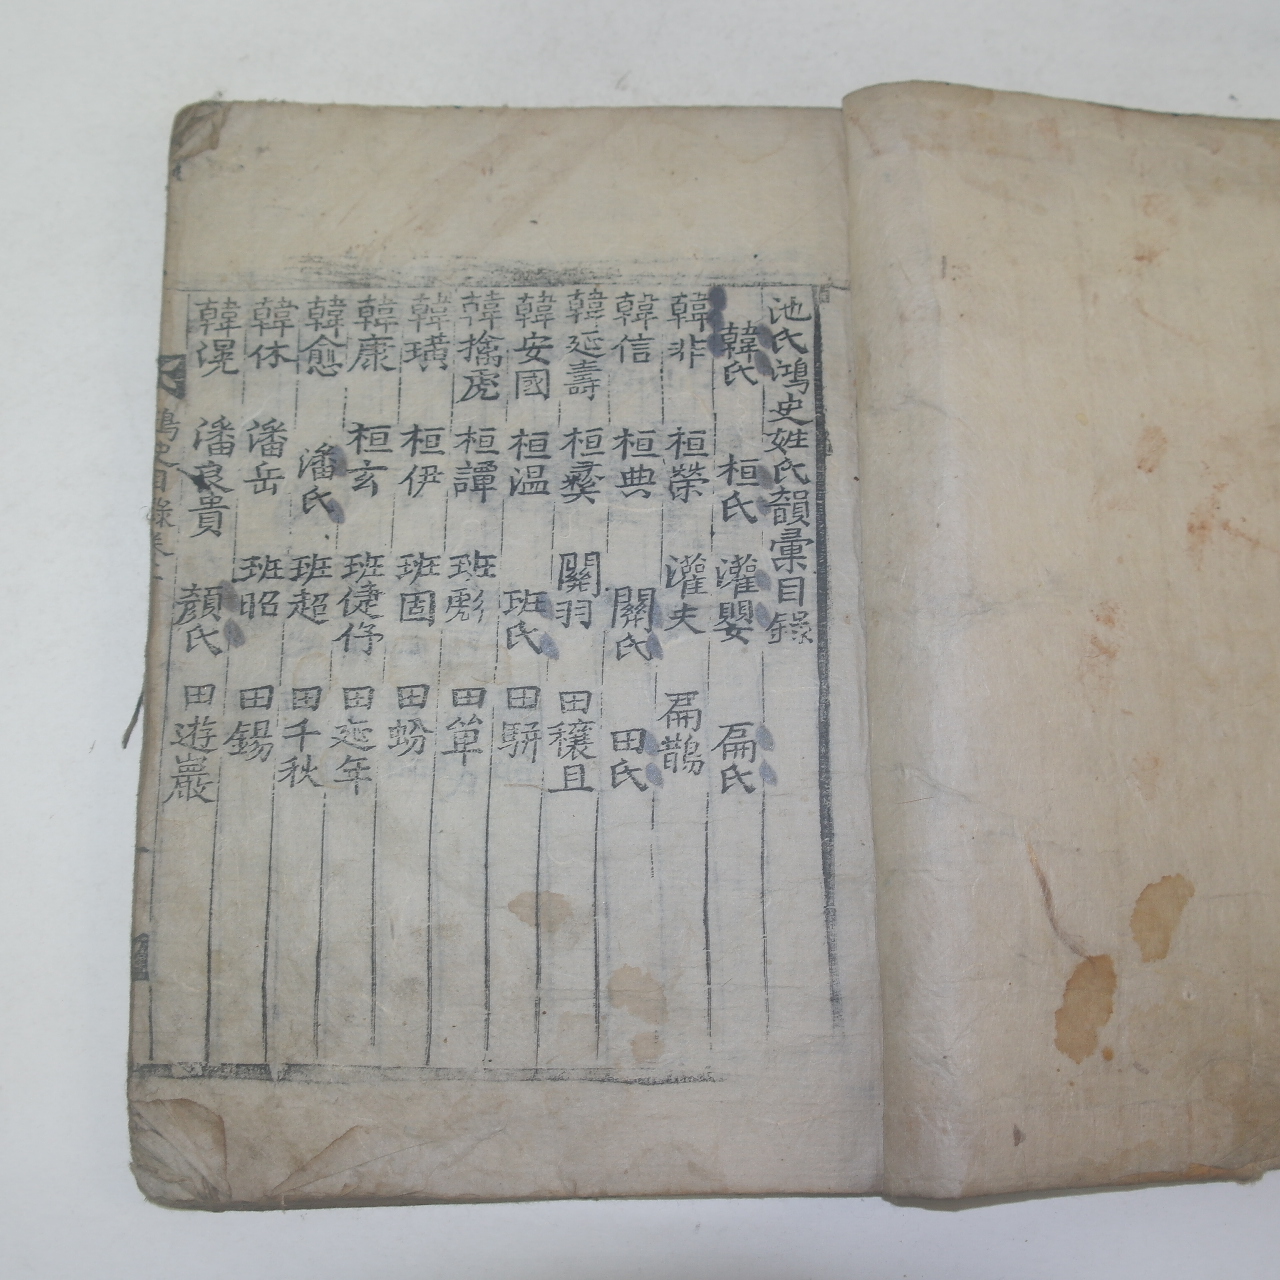 池氏鴻史姓氏韻彙目錄
韓氏 桓氏 灌嬰 扁氏
韓非 桓榮 灌夫 扁鵲
韓信 桓典 關氏 田氏
韓延壽 桓彛 關羽 田穰且
韓安國 桓温 班氏 田駢
韓擒虎 桓譚 班彪 田單
韓璜 桓伊 班固 田蚡
韓康 桓玄 班倢伃 田延年
韓愈 潘氏 班超 田千秋
韓休 潘岳 班昭 田錫
韓滉 潘良貴 顏氏 田遊巖
鴻史目錄卷